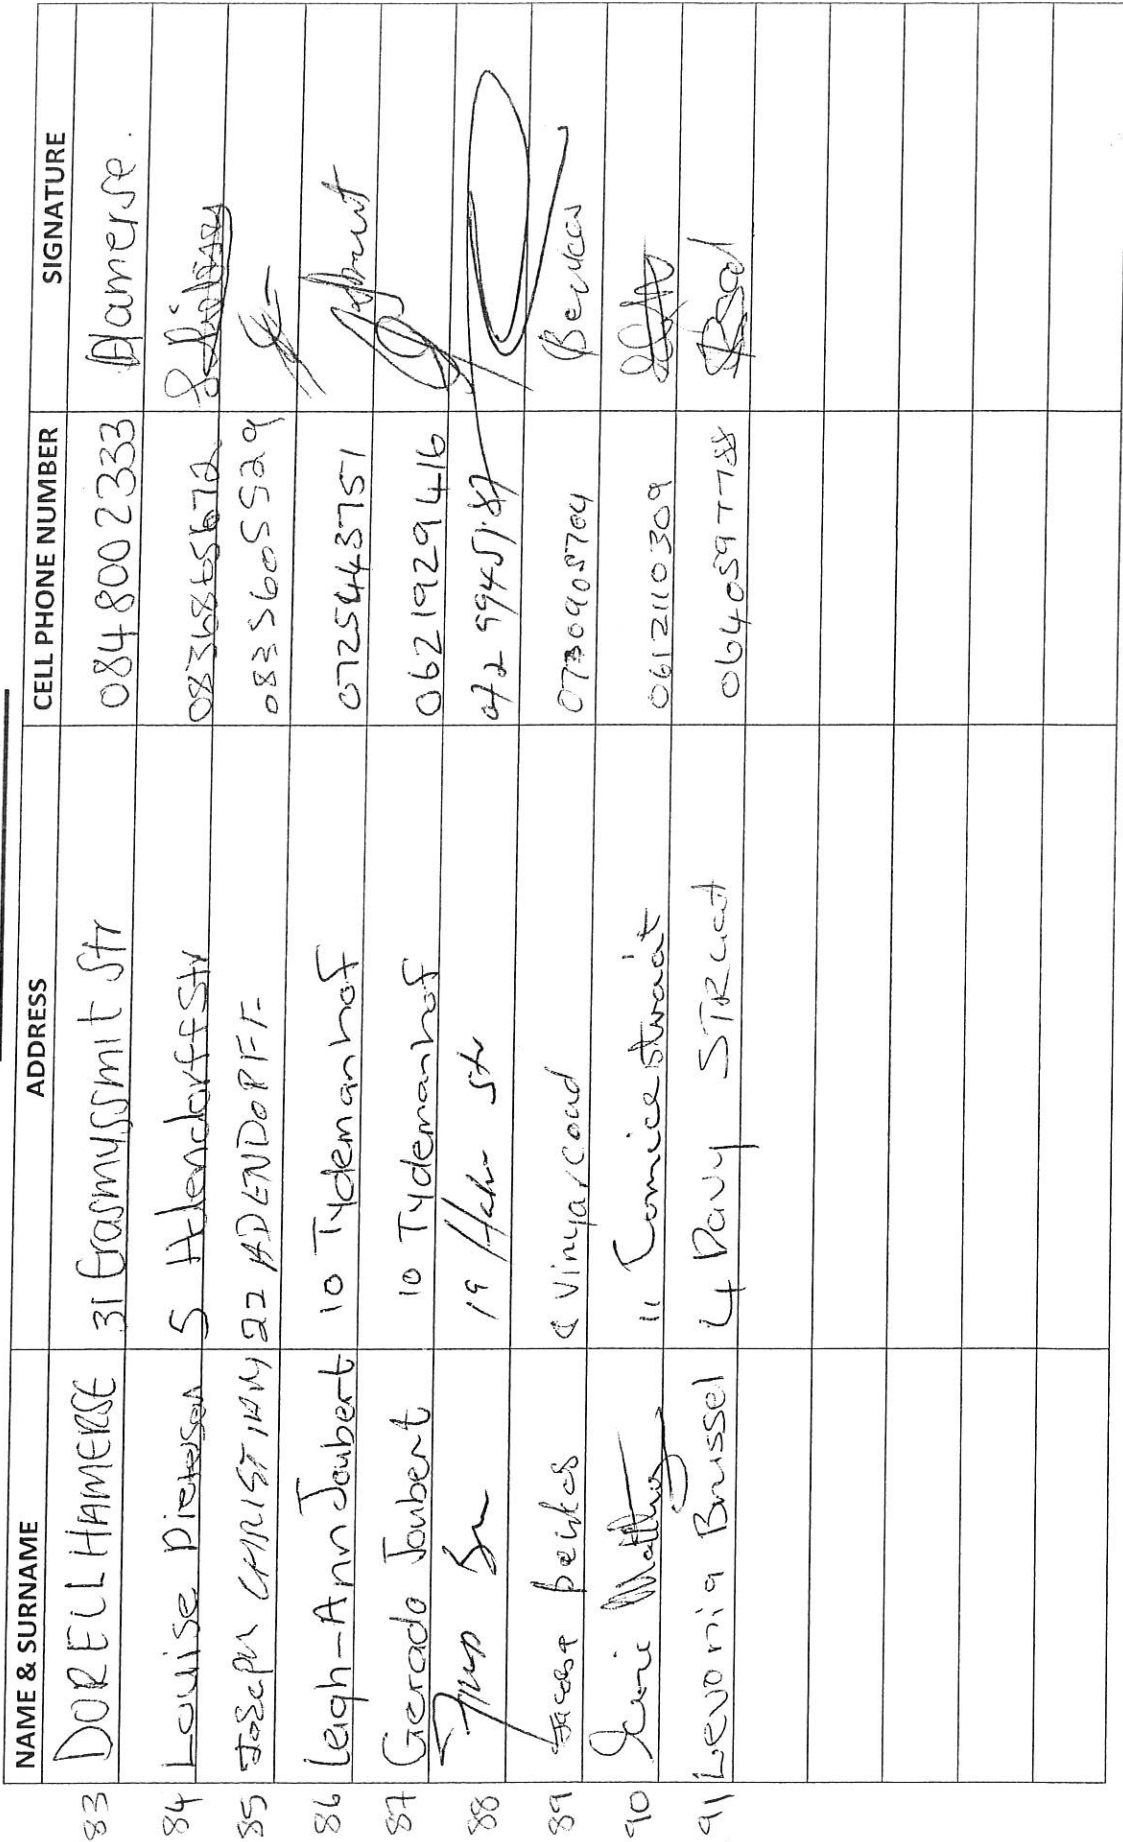 NAME & SURNAME ADDRESS CELL PHONE NUMBER SIGNATURE
83 DORELL HAMERSE 31 Erasmyssmit Str 0848002333 Hamerse.
84 Louise Pietersen 5 Adendorff Str 0836865672
85 Joseph CHRISTIAN 22 ADENDOPFF 0835605529
86 Leigh-Ann Joubert 10 Tydemanhof 0725443751 Joubert
87 Gerado Joubert 10 Tydemanhof 0621929416
88 19 Str
89 Jacoba Beukes 0730905704 Beukes
90 Matthys 11 0612110309
91 Levonia Brussel 4 Davy STReet 0640597788